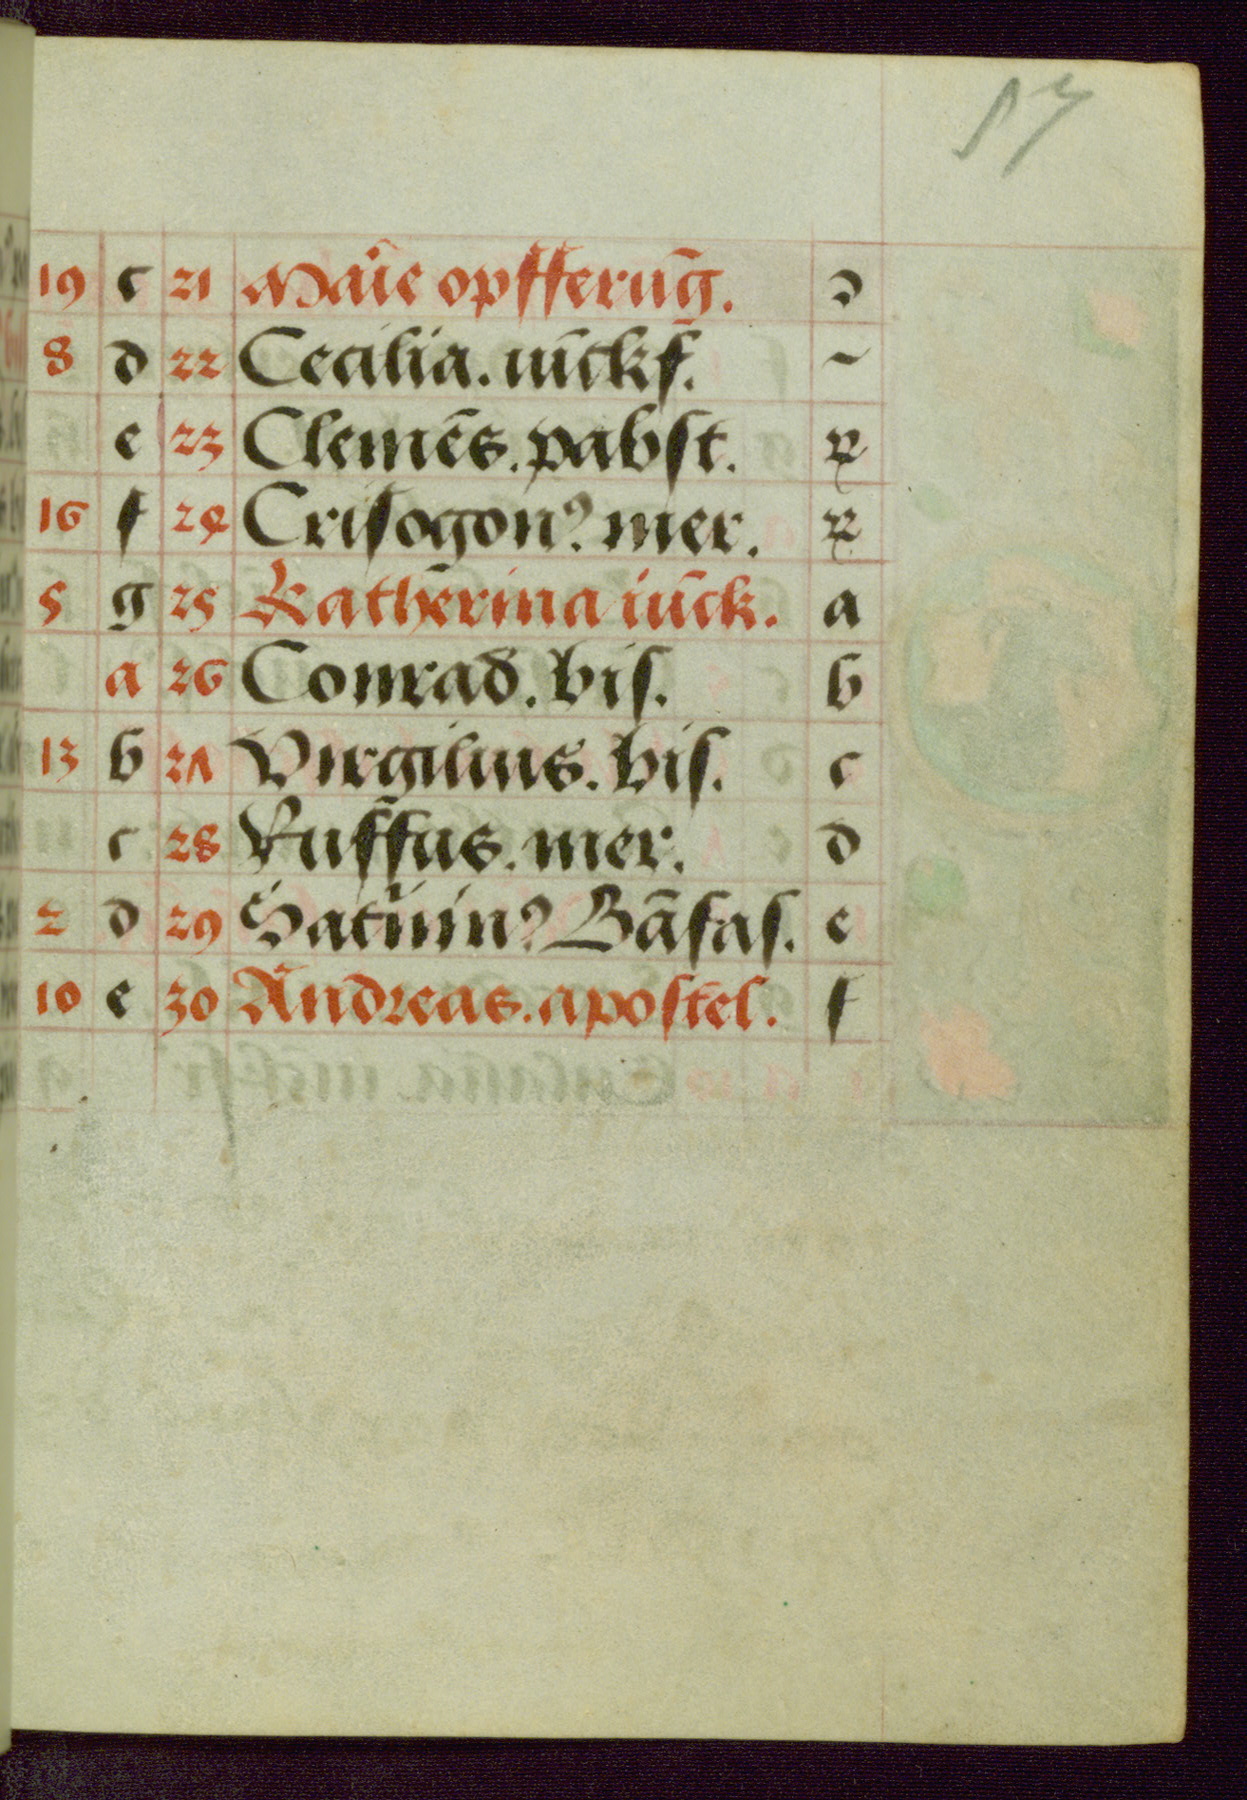 19 c 21 Marie opfferūg. ↄ
8 d 22 Cecilia. iūckf. ~
e 23 Clemēs. pabst. ꝝ
16 f 24 Crisogonꝰ. mer. ꝝ
5 g 25 Katherina iūck. a
a 26 Conrad. bis. b
13 b 27 Virgilius. bis. c
c 28 Ruffus. mer. d
2 d 29 Saturninꝰ. Bāfas. e
10 e 30 Andreas. apostel. f